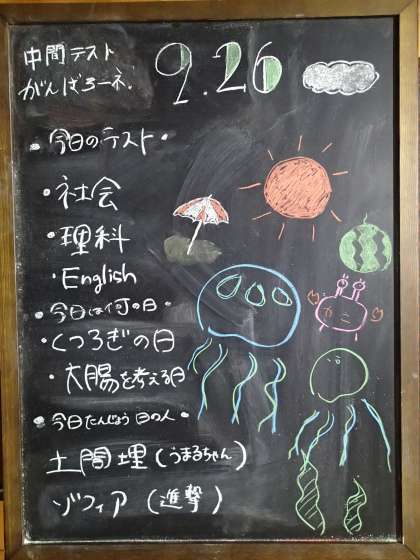 中間テスト
がんばろーネ!
9.26
・今日のテスト・
・社会
・理科
・English
・今日は何の日・
・くつろぎの日
・大腸を考える日
・今日たんじょう日の人・
土間埋(うまるちゃん)
ゾフィア(進撃)